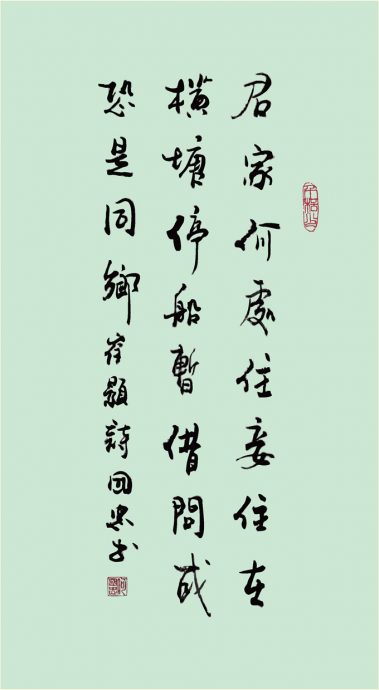 君家何處住妾住在
橫塘停船暫借問或
恐是同鄉崔顥詩国忠书